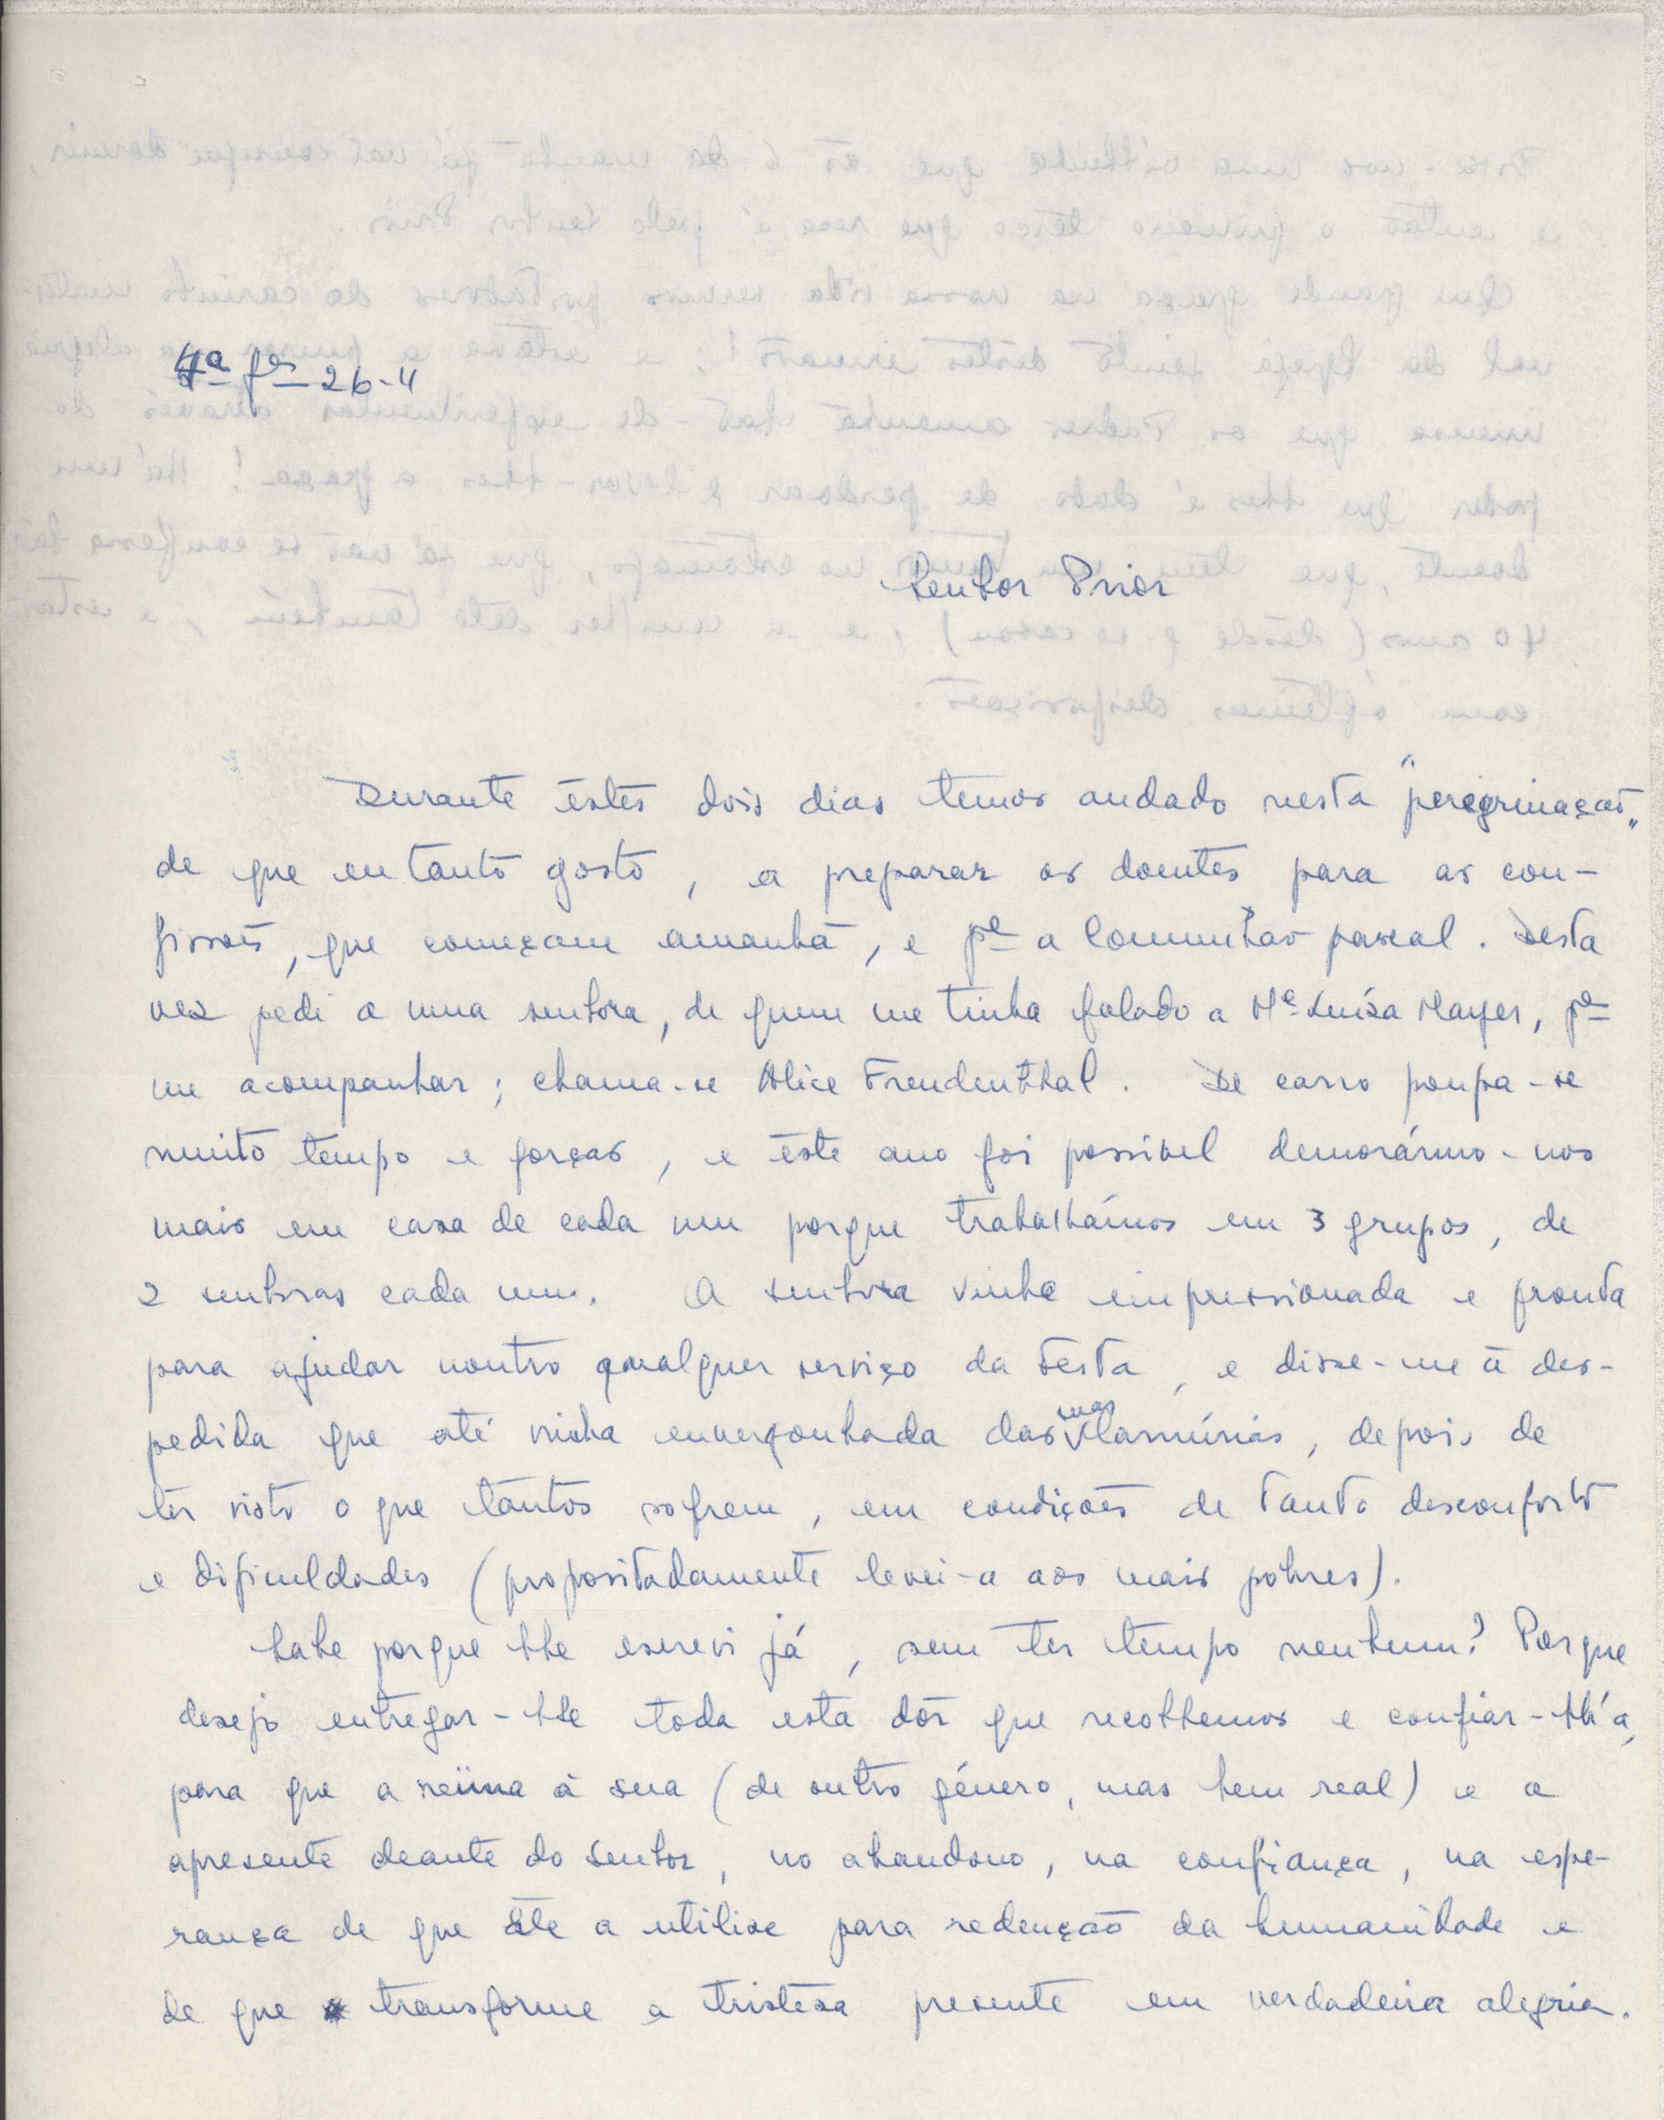 4ª fª 26-4
Senhor Prior
Durante êstes dois dias temos andado nesta "peregrinação"
de que eu tanto gosto, a preparar os doentes para as con-
fissões, que começam amanhã, e pª a Comunhão pascal. Desta
vez pedi a uma senhora, de quem me tinha falado a Mª Luísa Mayer, pª
me acompanhar; chama-se Alice Freudenthal. De carro poupa-se
muito tempo e forças, e êste ano foi possível demorármo-nos
mais em casa de cada um porque trabalhámos em 3 grupos, de
2 senhoras cada um. A senhora vinha impressionada e pronta
para ajudar noutro qualquer serviço da Festa, e disse-me à des-
pedida que até vinha envergonhada das suas lamúrias, depois de
ter visto o que tantos sofrem, em condições de tanto desconforto
e dificuldades (propositadamente levei-a aos mais pobres).
Sabe porque lhe escrevi já, sem ter tempo nenhum? Porque
desejo entregar-lhe toda esta dôr que recolhemos e confiar-lh'a,
para que a reüna à sua (de outro género, mas bem real) e a
apresente deante do Senhor, no abandono, na confiança, na espe-
rança de que Êle a utilise para redenção da humanidade e
de que transforme a tristeza presente em verdadeira alegria.